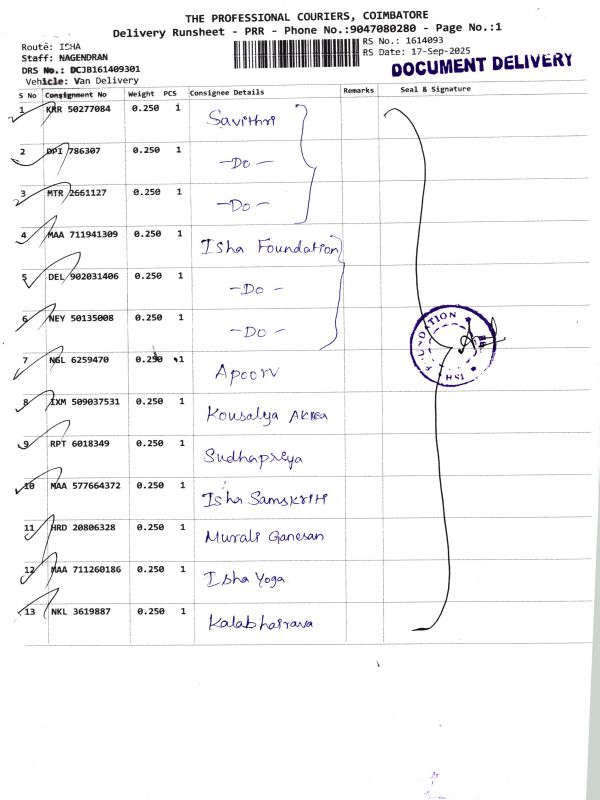 THE PROFESSIONAL COURIERS, COIMBATORE
Delivery Runsheet - PRR - Phone No.:9047080280 - Page No.:1
Route: ISHA
Staff: NAGENDRAN
DRS No.: DCJB161409301
Vehicle: Van Delivery
RS No.: 1614093
RS Date: 17-Sep-2025
DOCUMENT DELIVERY
S No Consignment No Weight PCS Consignee Details Remarks Seal & Signature
1 KRR 50277084 0.250 1 Savithri
2 DPI 786307 0.250 1 -Do-
3 MTR 2661127 0.250 1 -Do-
4 MAA 711941309 0.250 1 Isha Foundation
5 DEL 902031406 0.250 1 -Do-
6 NEY 50135008 0.250 1 -Do-
ISHA FOUNDATION
7 NGL 6259470 0.250 1 Apoorv
8 IXM 509037531 0.250 1 Kousalya
9 RPT 6018349 0.250 1 Sudhapriya
10 MAA 577664372 0.250 1 Isha Samskriti
11 HRD 20806328 0.250 1 Murali Ganesan
12 MAA 711260186 0.250 1 Isha Yoga
13 NKL 3619887 0.250 1 Kalabhairava